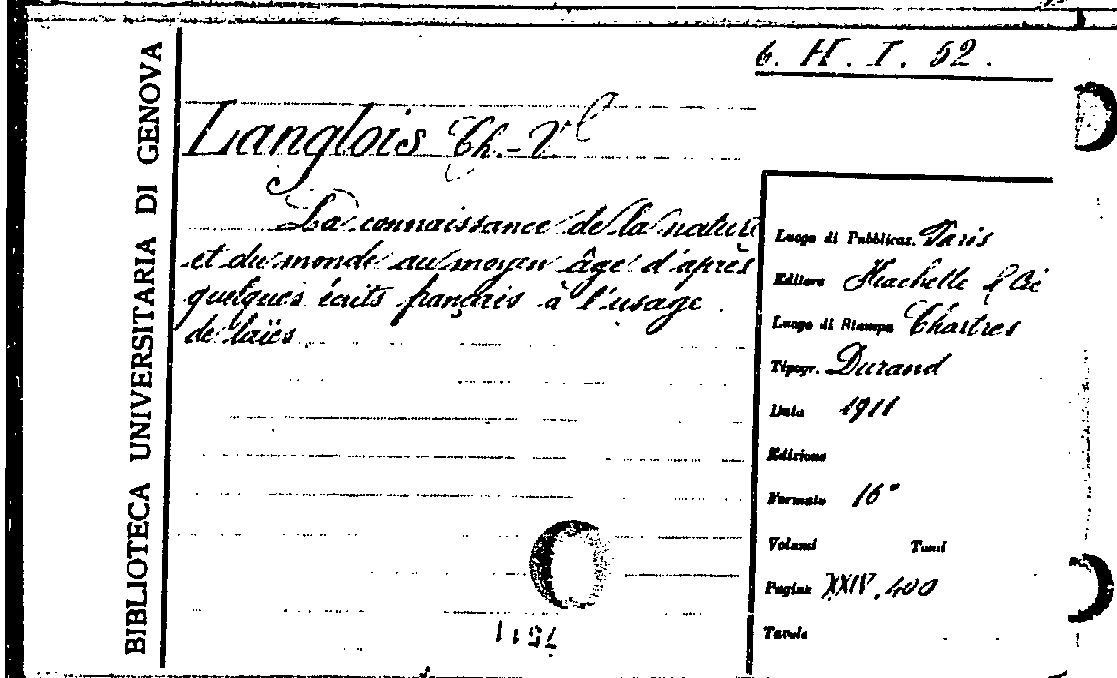 BIBLIOTECA UNIVERSITARIA DI GENOVA
6. H. I. 52.
Langlois Ch.-V.
La connaissance de la nature
et du monde au moyen âge d'après
quelques écrits français à l'usage
de laïcs
Luogo di Pubblicaz. Paris
Editore Hachette & Cie
Luogo di Stampa Chartres
Tipogr. Durand
Data 1911
Edizione
Formato 16°
Volumi Tomi
Pagine XXIV, 400
Tavole